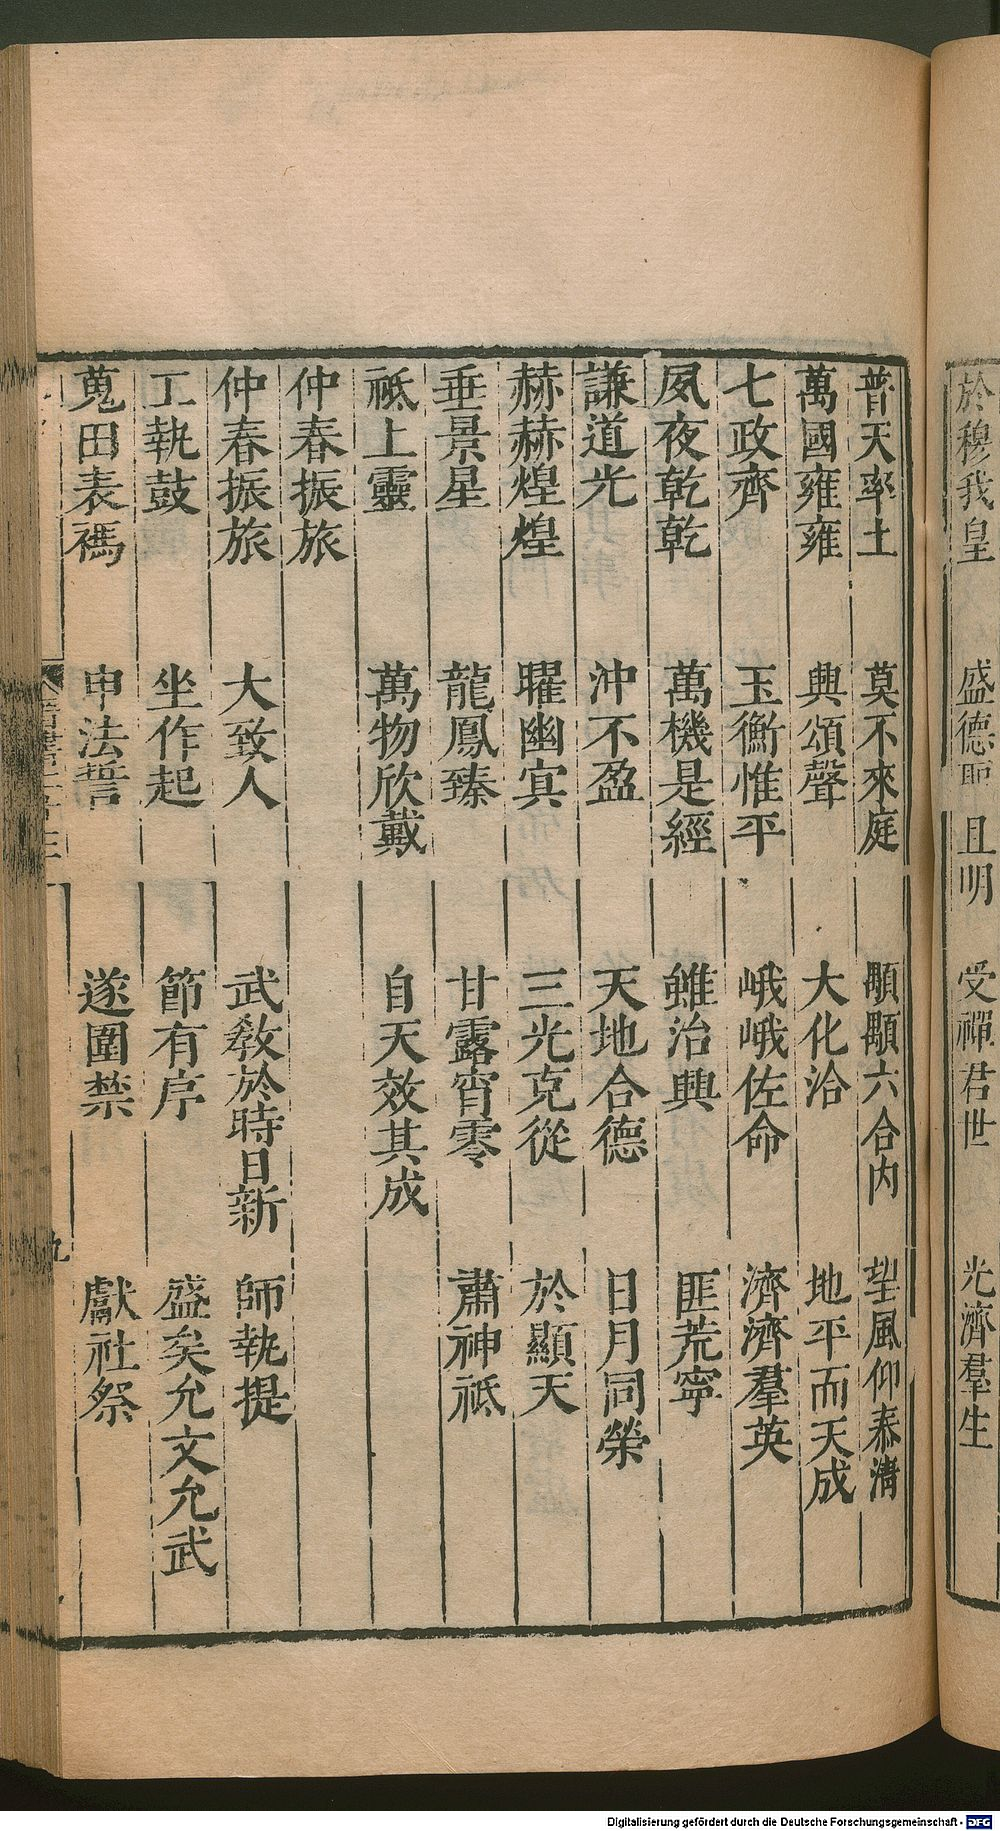 於穆我皇 盛德 且明 受禪君世 光濟羣生
普天率土 莫不來庭 顒顒六合内 望風仰泰清
萬國雍雍 興頌聲 大化洽 地平而天成
七政齊 玉衡惟平 峨峨佐命 濟濟羣英
夙夜乾乾 萬機是經 雖治興 匪荒寧
謙道光 沖不盈 天地合德 日月同榮
赫赫煌煌 曜幽㝠 三光克從 於顯天
垂景星 龍鳳臻 甘露宵零 肅神祗
祗上靈 萬物欣戴 自天效其成
仲春振旅
仲春振旅 大致人 武教於時日新 師執提
工執鼓 坐作起 節有序 盛矣允文允武
蒐田表禡 申法誓 遂圍禁 獻社祭
九
Digitalisierung gefördert durch die Deutsche Forschungsgemeinschaft - DFG